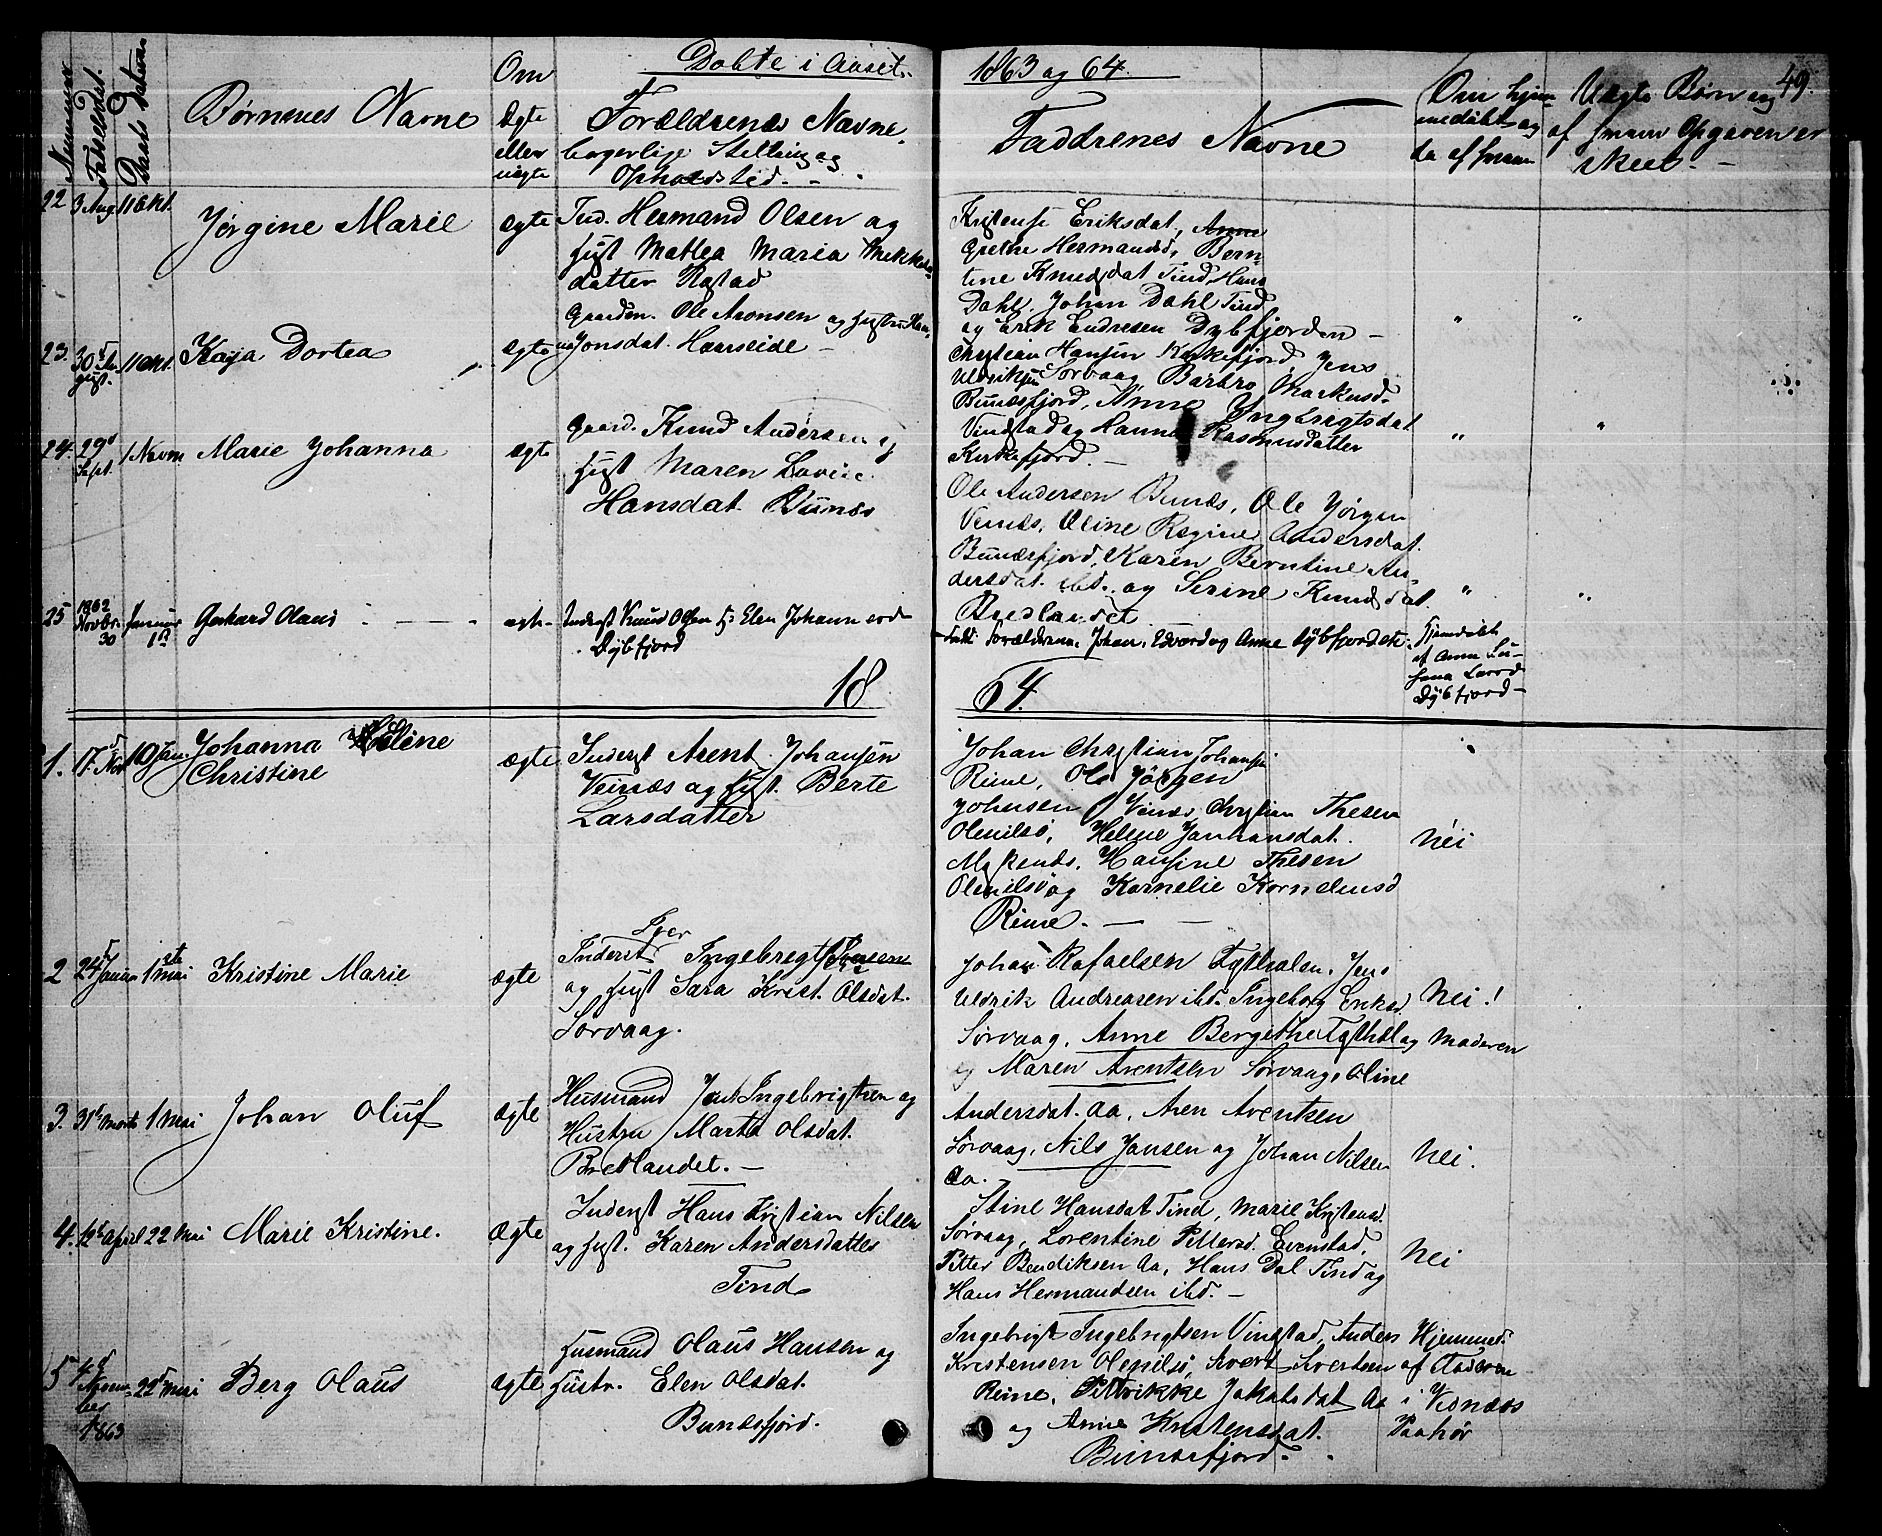 Døbte i Aaret 1863 og 64. 49.
Nummer
Fødselsdt.
Daabs Datum
Børnenes Navne
Om
Ægte
eller
uægte
Forældrenes Navne
borgerlige Stilling og
Opholdsted. -
Faddrenes Navne
Om hjem
medøbt og
da af hvem
Uægte Børn og
af hvem Opgaven er
skeet -
22 3 Aug. 1 Okt. Jørgine Marie ægte Ind. Hermand Olsen og
Hust Mattea Maria Mikkels
datter Rostad
Eriksdat, Anne
Grethe Hermandsd, Bern
tine Knudsdat Tind, Hans
Dahl, Johan Dahl Tind
og Erik Endresen Dybfjorden -
23. 30 Au
gust. 1 Okt. Kaja Dortea ægte
Gaardm. Ole Aronsen og Hustru Han
na Jonsdat. -
Christian Hansen Kirkefjord, Jens
Uldriksen Sørvaag, Barbro Markusd
Bunæsfjord, Anne Ingbrigtsdat
Vinstad og Hanna Rasmusdatter
Kirkefjord. -
24. 29 Sept. 1 Novm Marie Johanna ægte
Gaard. Knud Andersen og
Hust Maren Lovise
Hansdat. Bunæs
Ole Andersen Bunæs, Ole Jørgen
Venæs, Oline Regine Andersdat.
Bunæsfjord, Karen Berntine An
dersdat. ibd. og Serine Knudsdat
Bredlandet
25 1862
Novbr.
30 Januar
1st Gerhard Olaus ægte Inderst Knud Olsen og Elen
Dybfjord
Forældrene, Johan, Edvard og Anne Dybfjordet
Hjemdøbt
af Anna Su
sana Larsd
Dybfjord -
18 64.
1. 17. Nov 10 Jan Johanna Eline
Christine ægte Inderst Arent Johansen
Veinæs og Hust. Berte
Larsdatter
Johan Christian Johansen
Reine, Ole Jørgen
Johnsen Venæs, Christian Thesen
Olenilsø, Helene Janhansdat.
Hansine Thesen
Olenilsø og Kornelie Korneliusd
Reine. -
Nei
2 24 Januar 1ste mai Kristine Marie ægte
Inderst Ingebregt
og Hust Sara Krist. Olsdat.
Sørvaag.
Johan Rafaelsen Jens
Uldrik Andreasen ibd. Ingeborg Eriksd
Sørvaag, Anne Bergethe og
og Maren Arentsen Sørvaag, Oline
Nei!
Moderen
3. 31 Marts 1 Mai Johan Oluf ægte
Husmand Ingebrigtsen og
Hustru Marta Olsdat.
Bredlandet. -
Andersdat. Aa, Aren Arentsen
Sørvaag, Nils Jansen og Johan Nilsen
Aa.
Nei.
4. 12 April 22 Mai Marie Kristine. Ægte
Inderst Hans Kristian Nilsen
og Hust. Karen Andersdatter
Tind
Stine Hansdat Tind, Marie Kristensd.
Sørvaag, Lorentine Pettersd. Evenstad,
Petter Bendiksen Aa, Hans Dal Tind og
Hans Hermandsen ibd. -
Nei
5 4
Novem
ber
1863 22 Mai Berg Olaus ægte
Husmand Olaus Hansen og
Hustr. Elen Olsdat.
Bunæsfjord.
Ingebrigt Ingebrigtsen Vinstad, Anders
Kristensen Olenilsø, Sivert Sivertsen
Reine, Petrikke Jakobsdat Aa
og Anne Kristensdat.
Bunæsfjord.
Hjemmed.
af Faderen
i Venæs
Paahør